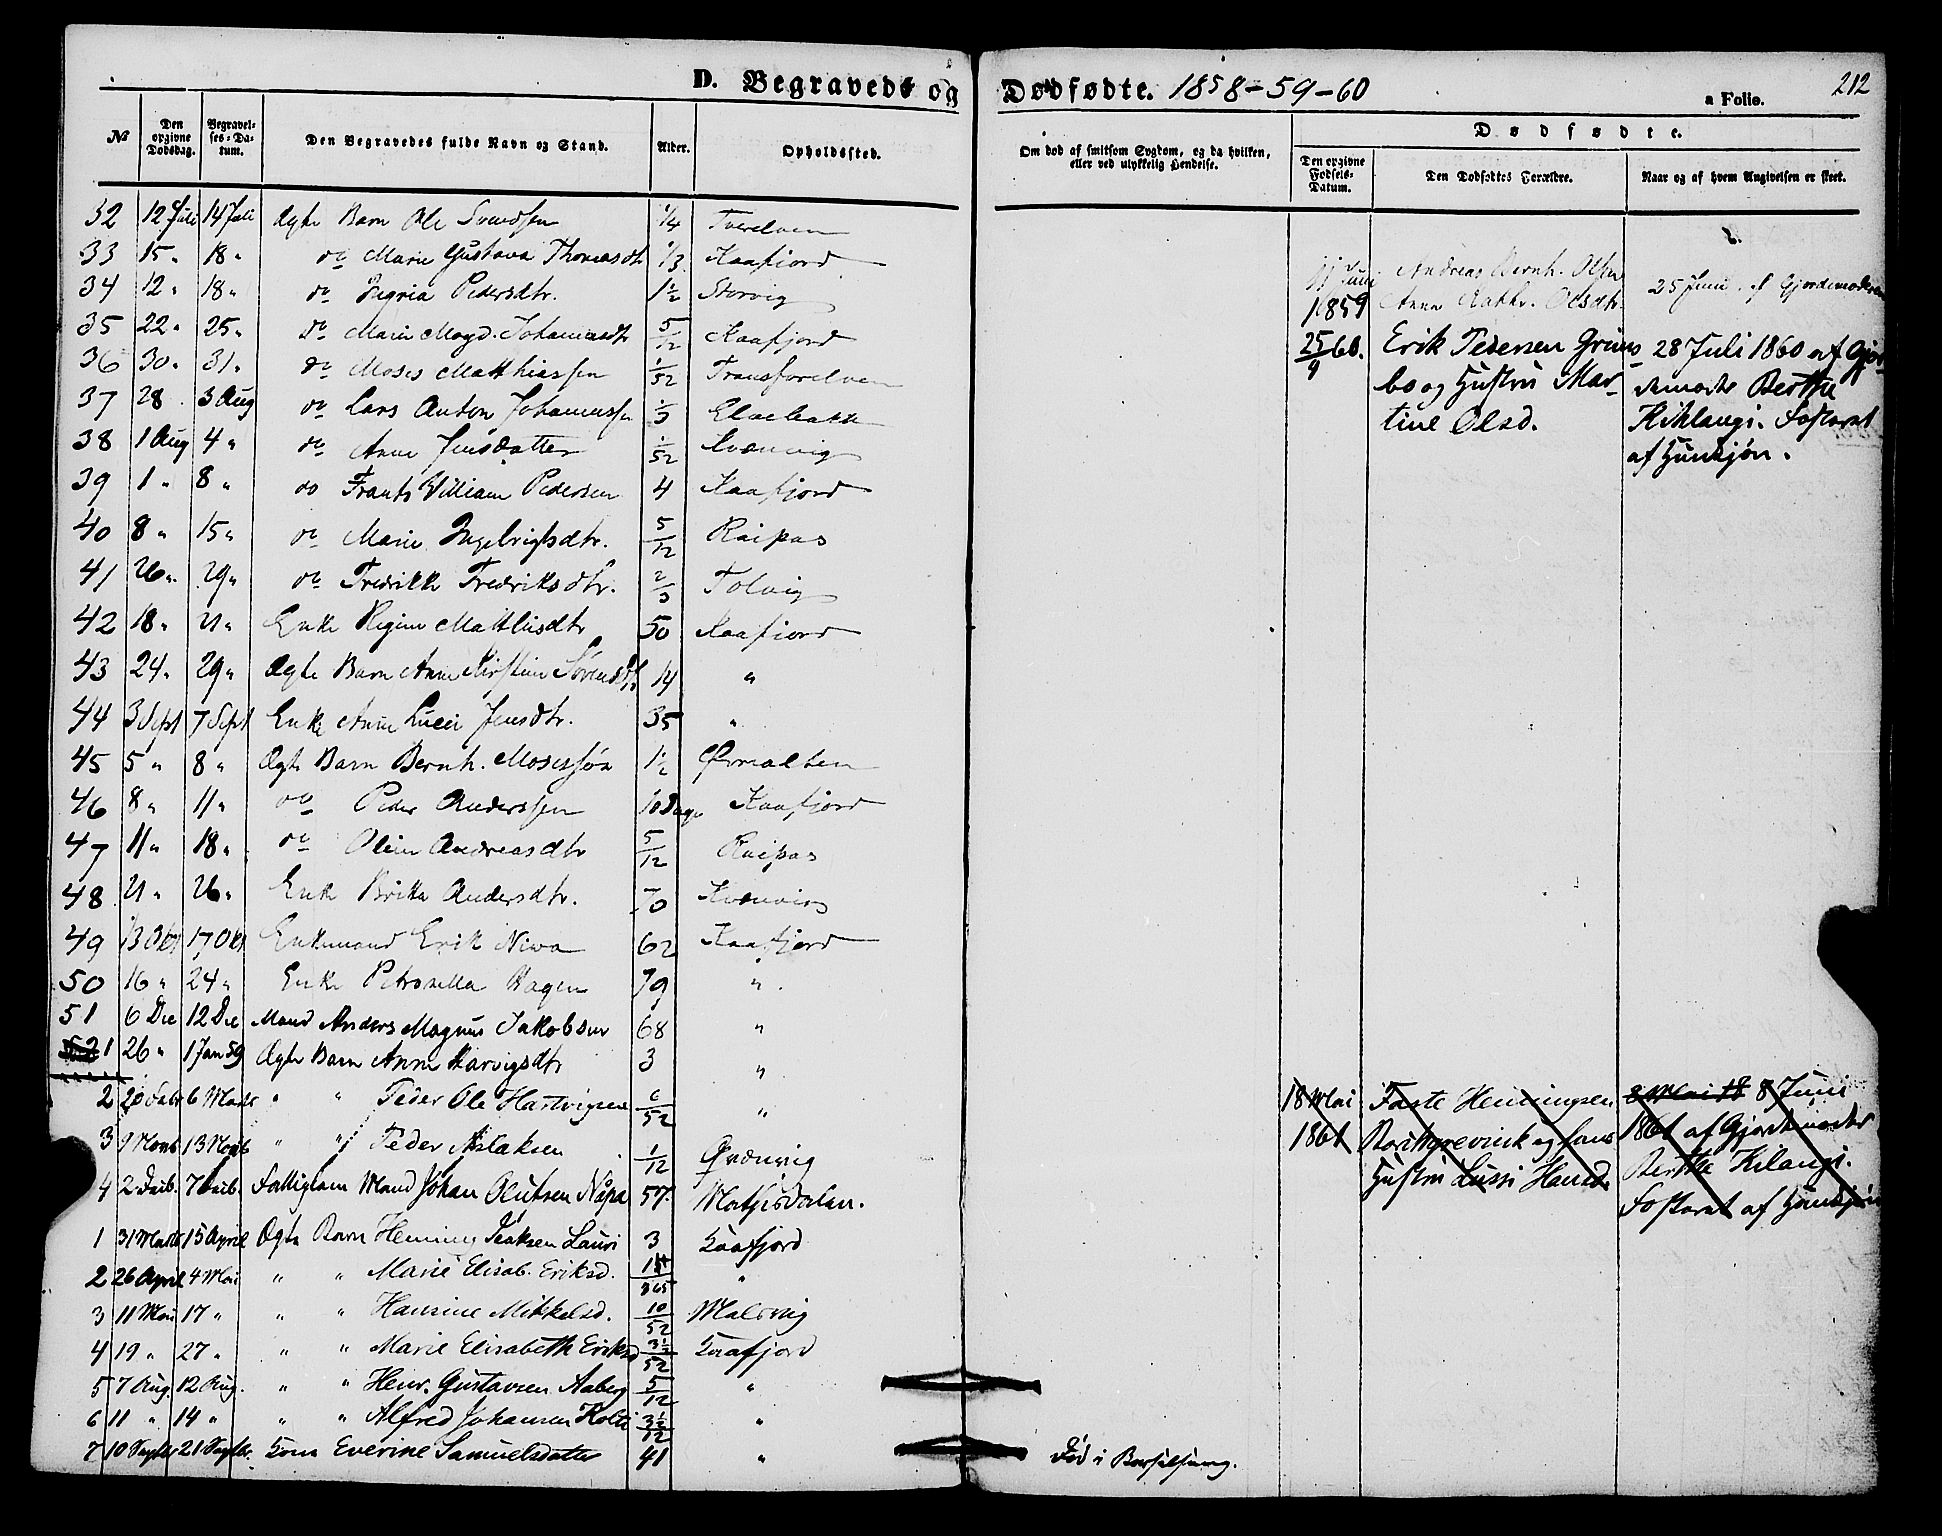 D. Begravede og Dødfødte. 1858-59-60
212
a Folio.
№
Den opgivne Dødsdag.
Begravelses-Datum.
Den Begravedes fulde Navn og Stand.
Alder.
Opholdssted.
Om død af smitsom Sygdom, og da hvilken, eller ved ulykkelig Hendelse.
Dødfødte.
Den opgivne Fødsels-Datum.
Den Dødfødtes Forældre.
Naar og af hvem Angivelsen er skeet.
32 12 Juli 14 Juli Ægte Barn Ole Svendsen 1/4 Tverelven
33 15 " 18 " do Marie Gustava Thomasdtr 1/3 Kaafjord
34 12 " 18 " do Ingria Pedersdtr. 1 1/2 Storvig
35 22 " 25 " do Marie Magd. Johannesdtr 5/12 Kaafjord
36 30 " 31 " do Moses Matthiassen 1/52 Transforelven
37 28 3 Aug do Lars Anton Johannessen 1/3 Elvebakke
38 1 Aug 4 " do Anne Jensdatter 1/52 Qvænvig
39 1 " 8 " do Frants William Pedersen 4 Kaafjord
40 8 " 15 " do Marie Ingebrigtsdtr. 5/12 Raipas
41 26 " 29 " do Fredrikke Fredriksdtr. 2/3 Talvig
42 18 " 21 " Enke Regine Matthisdtr 50 Kaafjord
43 24 " 29 " Ægte Barn Anne Kirstine Sørensdtr 14 "
44 3 Sept 7 Sept Enke Anne Lucie Jensdtr. 35 "
45 5 " 8 " Ægte Barn Bernh. Mosessøn 1 1/2 Øvrealten
46 8 " 11 " do Peder Anderssen 10 Dage Kaafjord
47 11 " 18 " do Oline Andreasdtr 5/12 Raipas
48 21 " 26 " Enke Brita Andersdtr. 70 Kvænvig
49 13 Okt 17 Okt Enkemand Erik Niwa 62 Kaafjord
50 16 " 24 " Enke Petronella Hagen 79 "
51 6 Dec 12 Dec Mand Anders Magnus Jakobsen 68 "
1 26 " 1 Jan 59 Ægte Barn Anne Harvigsdtr 3 "
2 20 Febr 6 Marts " " Peder Ole Hartvigsen 6/52 "
3 9 Marts 13 Marts " " Peder Aslaksen 1/12 Qvænvig
4 2 Feb. 7 Feb. Fattiglem Mand Johan Olufsen Napa 57 Mathisdalen.
1 31 Marts 15 April Ægte Barn Henning Isaksen Lauri 3 Kaafjord
2 26 April 4 Mai " " Marie Elisab. Eriksd. 14/365 "
3 11 Mai 17 " " " Hansine Mikkelsd. 10/52 Malsvig
4 19 " 27 " " " Marie Elisabeth Eriksd 3 1/2/52 Kaafjord
5 7 Aug. 12 Aug. " " Henr. Gustavsen Aaberg 5/12 "
6 11 " 14 " " " Alfred Johansen Kolti 3 1/2/12 "
7 10 Septbr 21 Septbr. Kone Everine Samuelsdatter 41 " Fød i
11 Juni 1859 Andreas Bernh. Olsen
Anne Kathr. Olsdtr. 25 Juni af Gjordemoderen
25/9 60. Erik Pedersen Grims
bo og Hustru Mar-
tine Olsd.
28 Juli 1860 af Gjor-
demoder Berthe
Kihlangi. Fosteret
af Hunkjøn.
18 Mai 1861 Faste Henningsen
og hans
Hustru Lussi Hansd.
8 Mai 18 8 Juni
1861 af Gjordemoder
Berthe Kilangi.
Fosteret af Hunkjøn